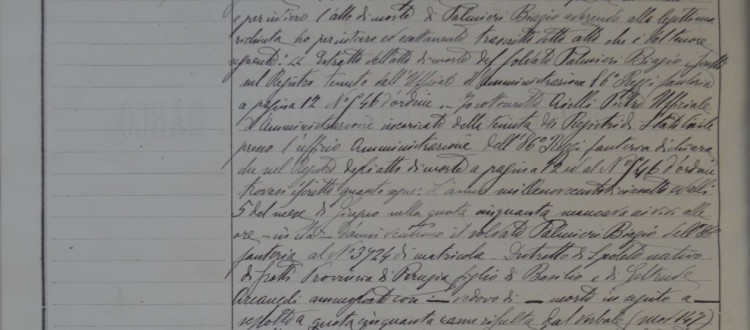 e per intiero l'atto di morte di Palmieri Biagio aderendo alla legittima
richiesta ho per intiero ed esattamente trascritto detto atto che è del tenore
seguente: Estratto dell'atto di morte del soldato Palmieri Biagio
nel Registro tenuto dall'Ufficio d'Amministrazione 86° Regg. Fanteria
a pagina 12 N° 546 d'ordine Io sottoscritto Aiello Pietro Ufficiale
d'Amministrazione incaricato della tenuta dei Registri di Stato Civile
presso l'ufficio Amministrazione dell'86° Regg. fanteria dichiara
che nel Registro degli atti di morte a pagina 12 ed al N° 546 d'ordine
trovasi quanto segue: L'anno millenovecentodiciassette addì
5 del mese di Giugno nella quota cinquanta mancava ai vivi alle
ore — in età d'anni ventuno il soldato Palmieri Biagio dell'86°
fanteria al N° 3424 di matricola Distretto di Spoleto nativo
di Provincia di Perugia figlio di Basilio e di Geltrude
Arcangeli ammogliato con — vedovo di — morto in seguito a
a quota cinquanta come risulta dal verbale (mod. 147)